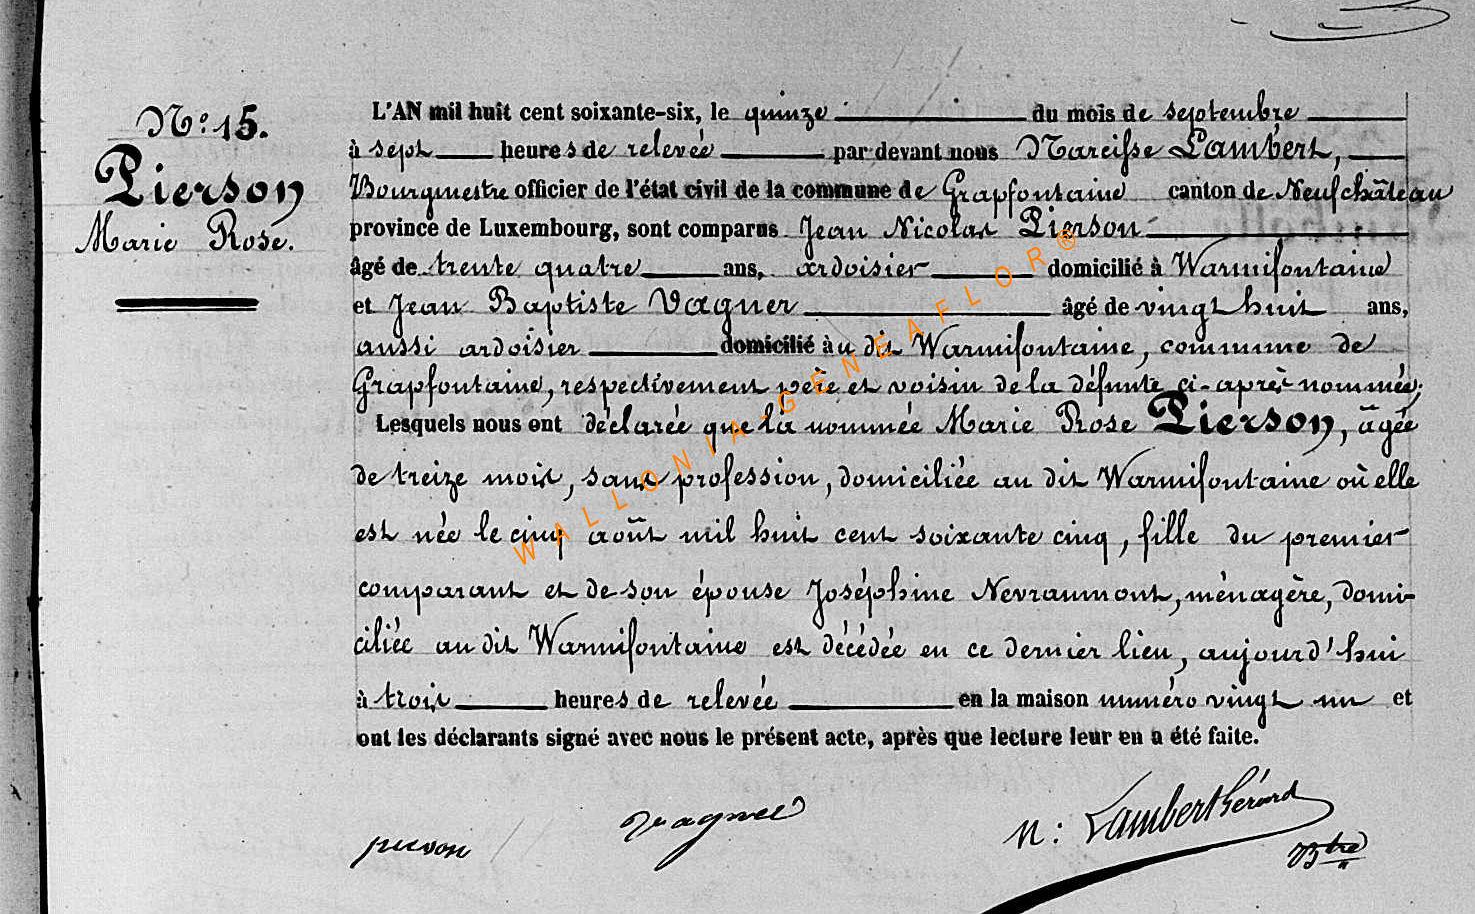 N° 15.
Pierson
Marie Rose.
L'AN mil huit cent soixante-six, le quinze du mois de septembre
à sept heures de relevée par devant nous Narcisse Lambert,
Bourgmestre officier de l'état civil de la commune de Grapfontaine canton de Neufchâteau
province de Luxembourg, sont comparus Jean Nicolas Pierson
âgé de trente quatre ans, ardoisier domicilié à Warmifontaine
et Jean Baptiste Vagner âgé de vingt huit ans,
aussi ardoisier domicilié àu dit Warmifontaine, commune de
Grapfontaine, respectivement père et voisin de la défunte ci-après nommée;
Lesquels nous ont déclarée que la nommée Marie Rose Pierson, âgée
de treize mois, sans profession, domiciliée au dit Warmifontaine où elle
est née le cinq août mil huit cent soixante cinq, fille du premier
comparant et de son épouse Joséphine Nevraumont, ménagère, domi-
ciliée au dit Warmifontaine est décédée en ce dernier lieu, aujourd'hui
à trois heures de relevée en la maison numéro vingt un et
ont les déclarants signé avec nous le présent acte, après que lecture leur en a été faite.
pierson
N: Lambert Gérard
Btre
WALLONIA-GENEAFLOR®